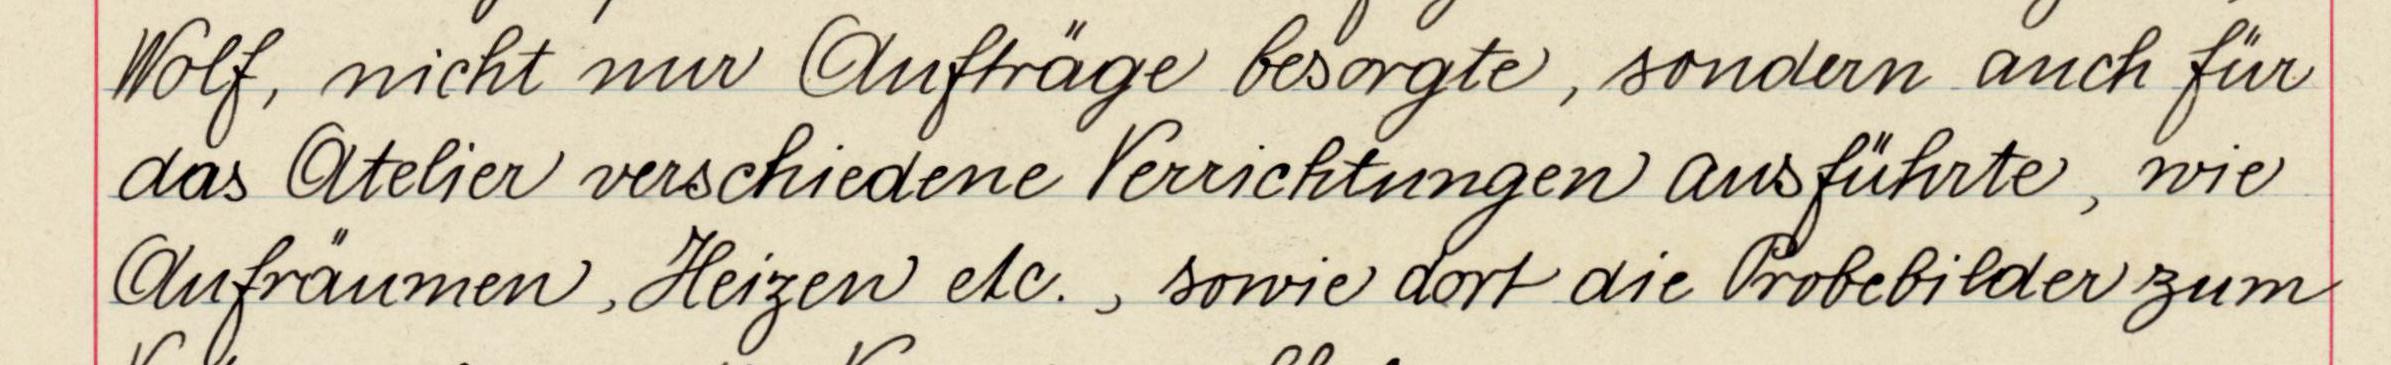 Wolf, nicht nur Aufträge besorgte, sondern auch für
das Atelier verschiedene Verrichtungen ausführte, wie
Aufräumen, Heizen etc., sowie dort die Probebilder zum